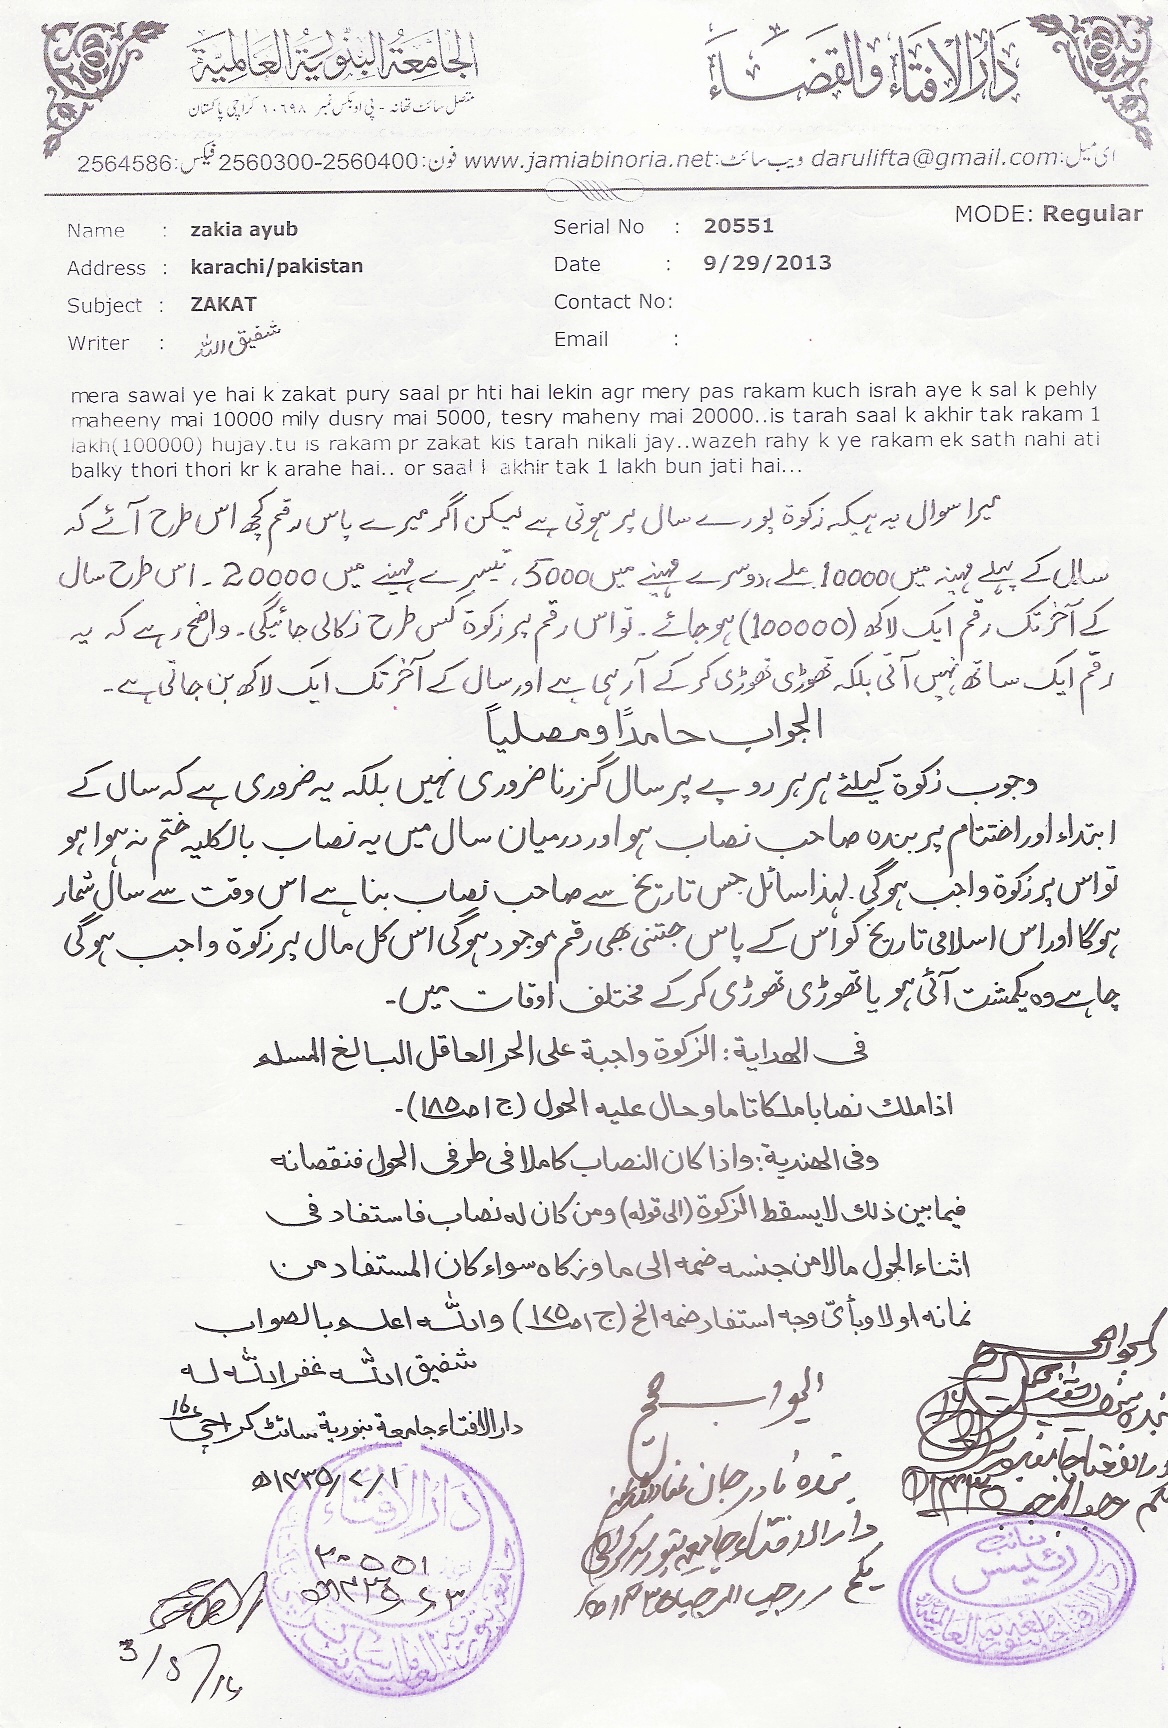 دارالافتاء والقضاء
الجامعة البنورية العالمية
متصل سائٹ تھانہ - پی او بکس نمبر ۱۰۶۹۸ کراچی پاکستان
ای میل:darulifta@gmail.com ویب سائٹ:www.jamiabinoria.net فون:2560300-2560400 فیکس:2564586
MODE: Regular
Name : zakia ayub Serial No : 20551
Address : karachi/pakistan Date : 9/29/2013
Subject : ZAKAT Contact No:
Writer : شفیق اللہ Email :
mera sawal ye hai k zakat pury saal pr hti hai lekin agr mery pas rakam kuch israh aye k sal k pehly
maheeny mai 10000 mily dusry mai 5000, tesry maheny mai 20000..is tarah saal k akhir tak rakam 1
lakh(100000) hujay.tu is rakam pr zakat kis tarah nikali jay..wazeh rahy k ye rakam ek sath nahi ati
balky thori thori kr k arahe hai.. or saal k akhir tak 1 lakh bun jati hai...
میرا سوال یہ ہیکہ زکوۃ پورے سال پر ہوتی ہے لیکن اگر میرے پاس رقم کچھ اس طرح آئے کہ
سال کے پہلے مہینہ میں 10000 ملے، دوسرے مہینے میں 5000، تیسرے مہینے میں 20000 ۔ اس طرح سال
کے آخر تک رقم ایک لاکھ (100000) ہو جائے ۔ تو اس رقم پر زکوۃ کس طرح نکالی جائیگی ۔ واضح رہے کہ یہ
رقم ایک ساتھ نہیں آتی بلکہ تھوڑی تھوڑی کر کے آرہی ہے اور سال کے آخر تک ایک لاکھ بن جاتی ہے ۔
الجواب حامدًا ومصلیاً
وجوب زکوۃ کیلئے ہر ہر روپے پر سال گزرنا ضروری نہیں بلکہ یہ ضروری ہے کہ سال کے
ابتداء اور اختتام پر بندہ صاحب نصاب ہو اور درمیان سال میں یہ نصاب بالکلیہ ختم نہ ہوا ہو
تو اس پر زکوۃ واجب ہوگی۔ لہذا سائل جس تاریخ سے صاحب نصاب بنا ہے اس وقت سے سال شمار
ہوگا اور اس اسلامی تاریخ کو اس کے پاس جتنی بھی رقم موجود ہوگی اس کل مال پر زکوۃ واجب ہوگی
چاہے وہ یکمشت آئی ہو یا تھوڑی تھوڑی کر کے مختلف اوقات میں ۔
فی الهدایة : الزکوة واجبة علی الحر العاقل البالغ المسلم
اذا ملك نصابا ملكا تاما وحال علیه الحول (ج۱ ص۱۸۵)۔
وفی الهندیة : واذا کان النصاب کاملا فی طرفی الحول فنقصانه
فیما بین ذلك لا یسقط الزکوة (الی قوله) ومن کان له نصاب فاستفاد فی
اثناء الحول مالا من جنسه ضمه الی ماله وزکاه سواء کان المستفاد من
نمائه اولا وبأیّ وجه استفاد ضمه الخ (ج۱ ص۱۷۵) واللہ اعلم بالصواب
شفیق اللہ غفر اللہ له
دارالافتاء جامعہ بنوریہ سائٹ کراچی ۱۶
الجواب صحیح
بندہ نادر جان عفا اللہ عنہ
دارالافتاء جامعہ بنوریہ کراچی
یکم رجب المرجب ۱۴۳۵ھ
دارالافتاء
۲۰۵۵۱
3/5/14
الجواب صحیح
نائب
رئیس
دارالافتاء جامعہ بنوریہ العالمیہ